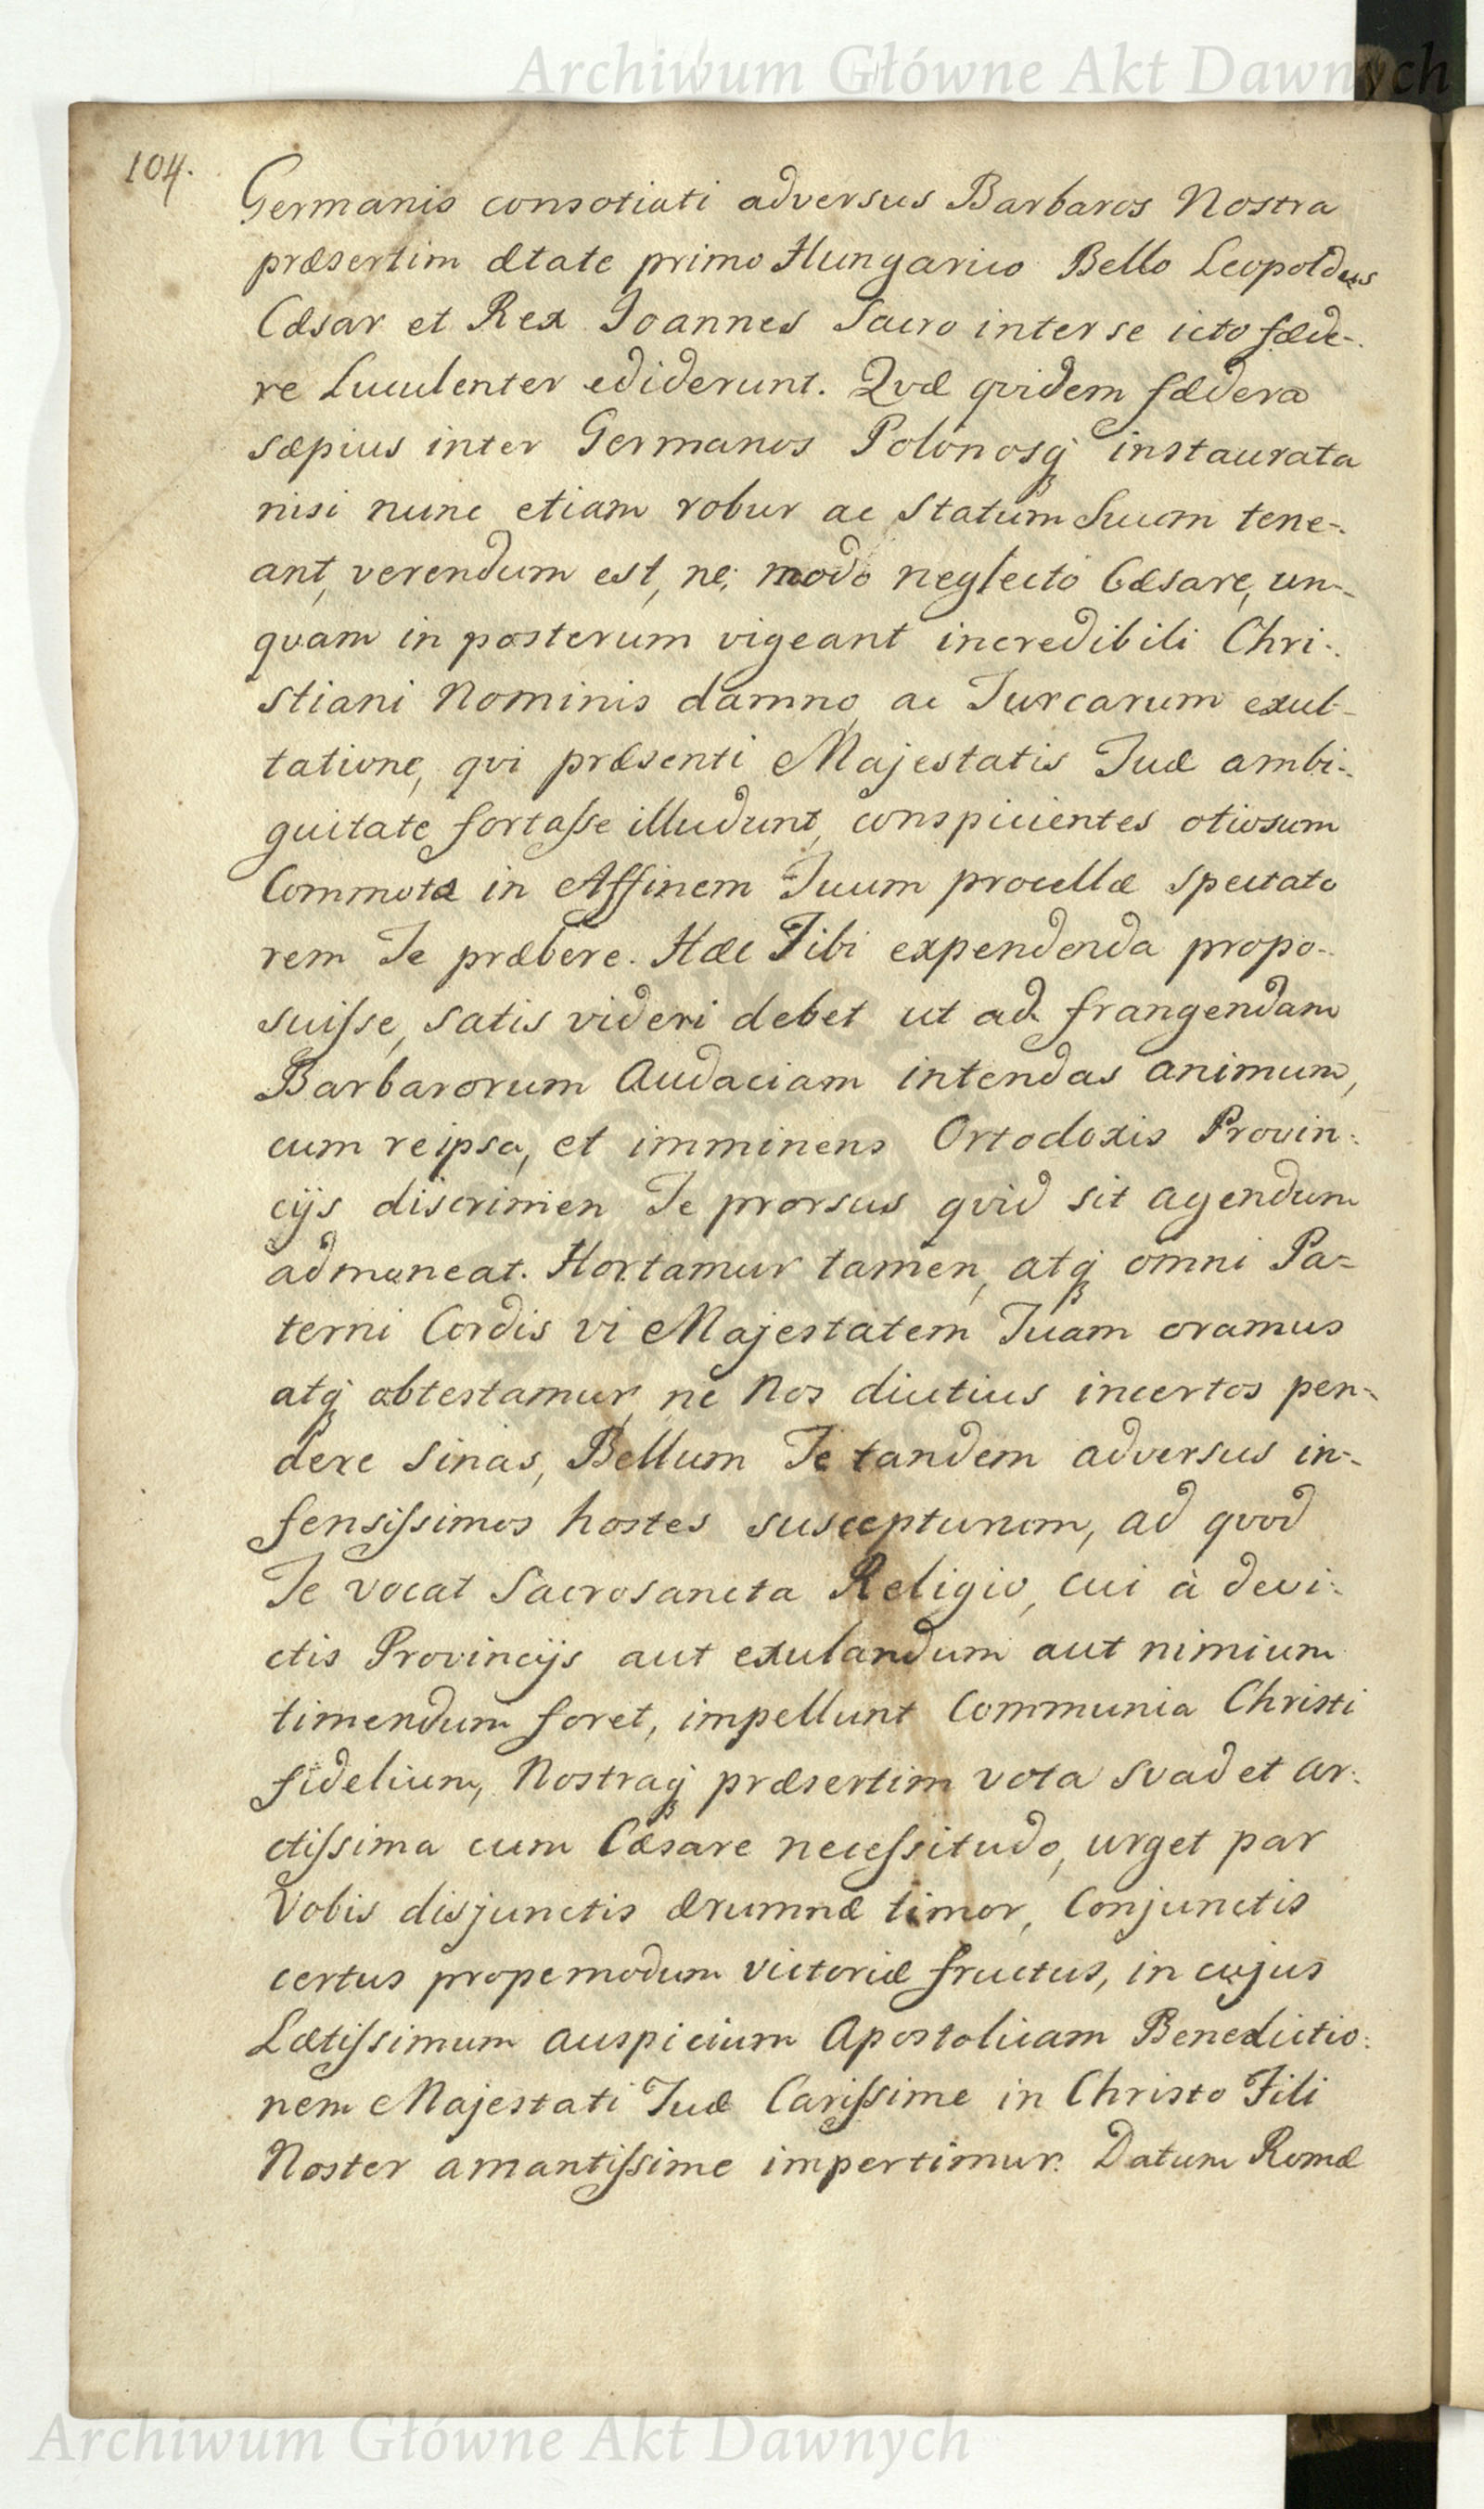 Archiwum Główne Akt Dawnych
104.
Germanis consotiati adversus Barbaros Nostra
præsertim ætate primo Hungarico Bello Leopoldus
Cæsar et Rex Joannes Sacro inter se icto fæde-
re Luculenter ediderunt. Qvæ qvidem fædera
sæpius inter Germanos Polonosq́ instaurata
nisi nunc etiam robur ac Statum Suum tene-
ant, verendum est, ne, modo neglecto Cæsare, un-
qvam in posterum vigeant incredibili Chri-
stiani Nominis damno, ac Turcarum exul-
tatione, qvi præsenti Majestatis Tuæ ambi-
guitate fortaſse illudunt, conspicientes otiosum
Commotæ in Affinem Tuum procellæ Spectato
rem Te præbere. Hæc Tibi expendenda propo-
suiſse, satis videri debet ut ad frangendam
Barbarorum Audaciam intendas animum,
cum reipsa, et imminens Ortodoxis Provin:
cijs discrimen Te prorsus qvid sit agendum
admoneat. Hortamur tamen, atq́ omni Pa=
terni Cordis vi Majestatem Tuam oramus
atq́ obtestamur, ne Nos diutius incertos pen-
dere Sinas, Bellum Te tandem adversus in-
fensiſsimos hostes suscepturum, ad qvod
Te vocat Sacrosancta Religio, cui à devi:
ctis Provincijs aut exulandum aut nimium
timendum foret, impellunt Communia Christi
fidelium, Nostraq́ præsertim vota svadet ar:
ctiſsima cum Cæsare neceſsitudo, urget par
Vobis disjunctis ærumnæ timor, Conjunctis
certus propemodum victoriæ fructus, in cujus
Lætiſsimum auspicium Apostolicam Benedictio:
nem Majestati Tuæ Cariſsime in Christo Fili
Noster amantiſsime impertimur. Datum Romæ
Archiwum Główne Akt Dawnych